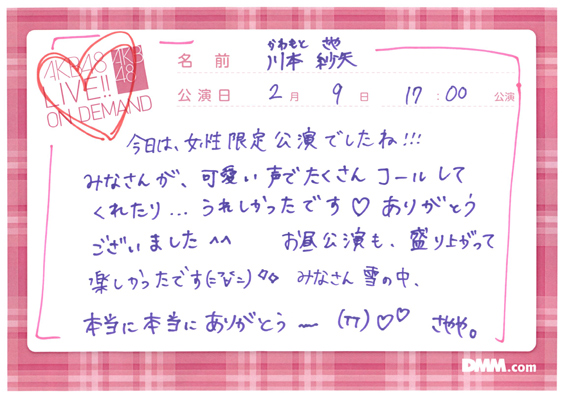 AKB48
LIVE!!
ON DEMAND
AKB
48
かわもと さや
名前 川本 紗矢
公演日 2月 9日 17:00 公演
今日は、女性限定公演でしたね!!!
みなさんが、可愛い声でたくさん コールして
くれたり... うれしかったです♡ ありがとう
ございました ^^ お昼公演も、盛り上がって
楽しかったです(ﾆﾋﾞﾆ)◇◇ みなさん 雪の中、
本当に本当に ありがとう〜 (TT)♡♡ さやや。
DMM.com